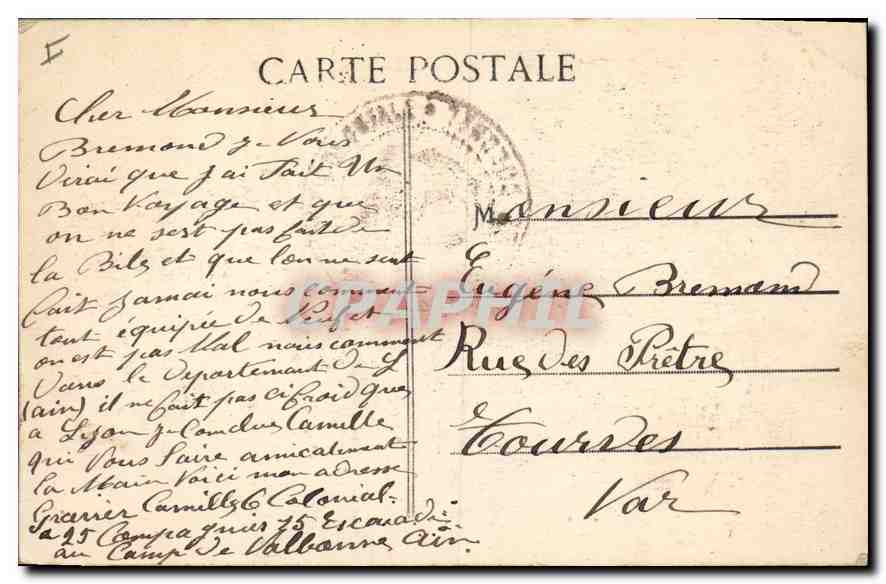 CARTE POSTALE
Cher Monsieur
Bremond je Vous
Dirai que j'ai fait Un
Bon Voyage et que
on ne sest pas fait de
la Bile et que lon ne sent
fait jamai nous comment
tout équipée de
on est pas Mal nous comment
Dans le Departement de L
(ain) il ne fait pas ci froid que
a Lyon je Camille
qui Vous amicalement
la Main Voici mon adresse
Camille 6 Colonial
25 Compagnies 75 Escouade
au Camp de Valbonne Ain
Monsieur
Eugéne Bremond
Rue des Prêtre
Tourves
Var
CPAPHIL